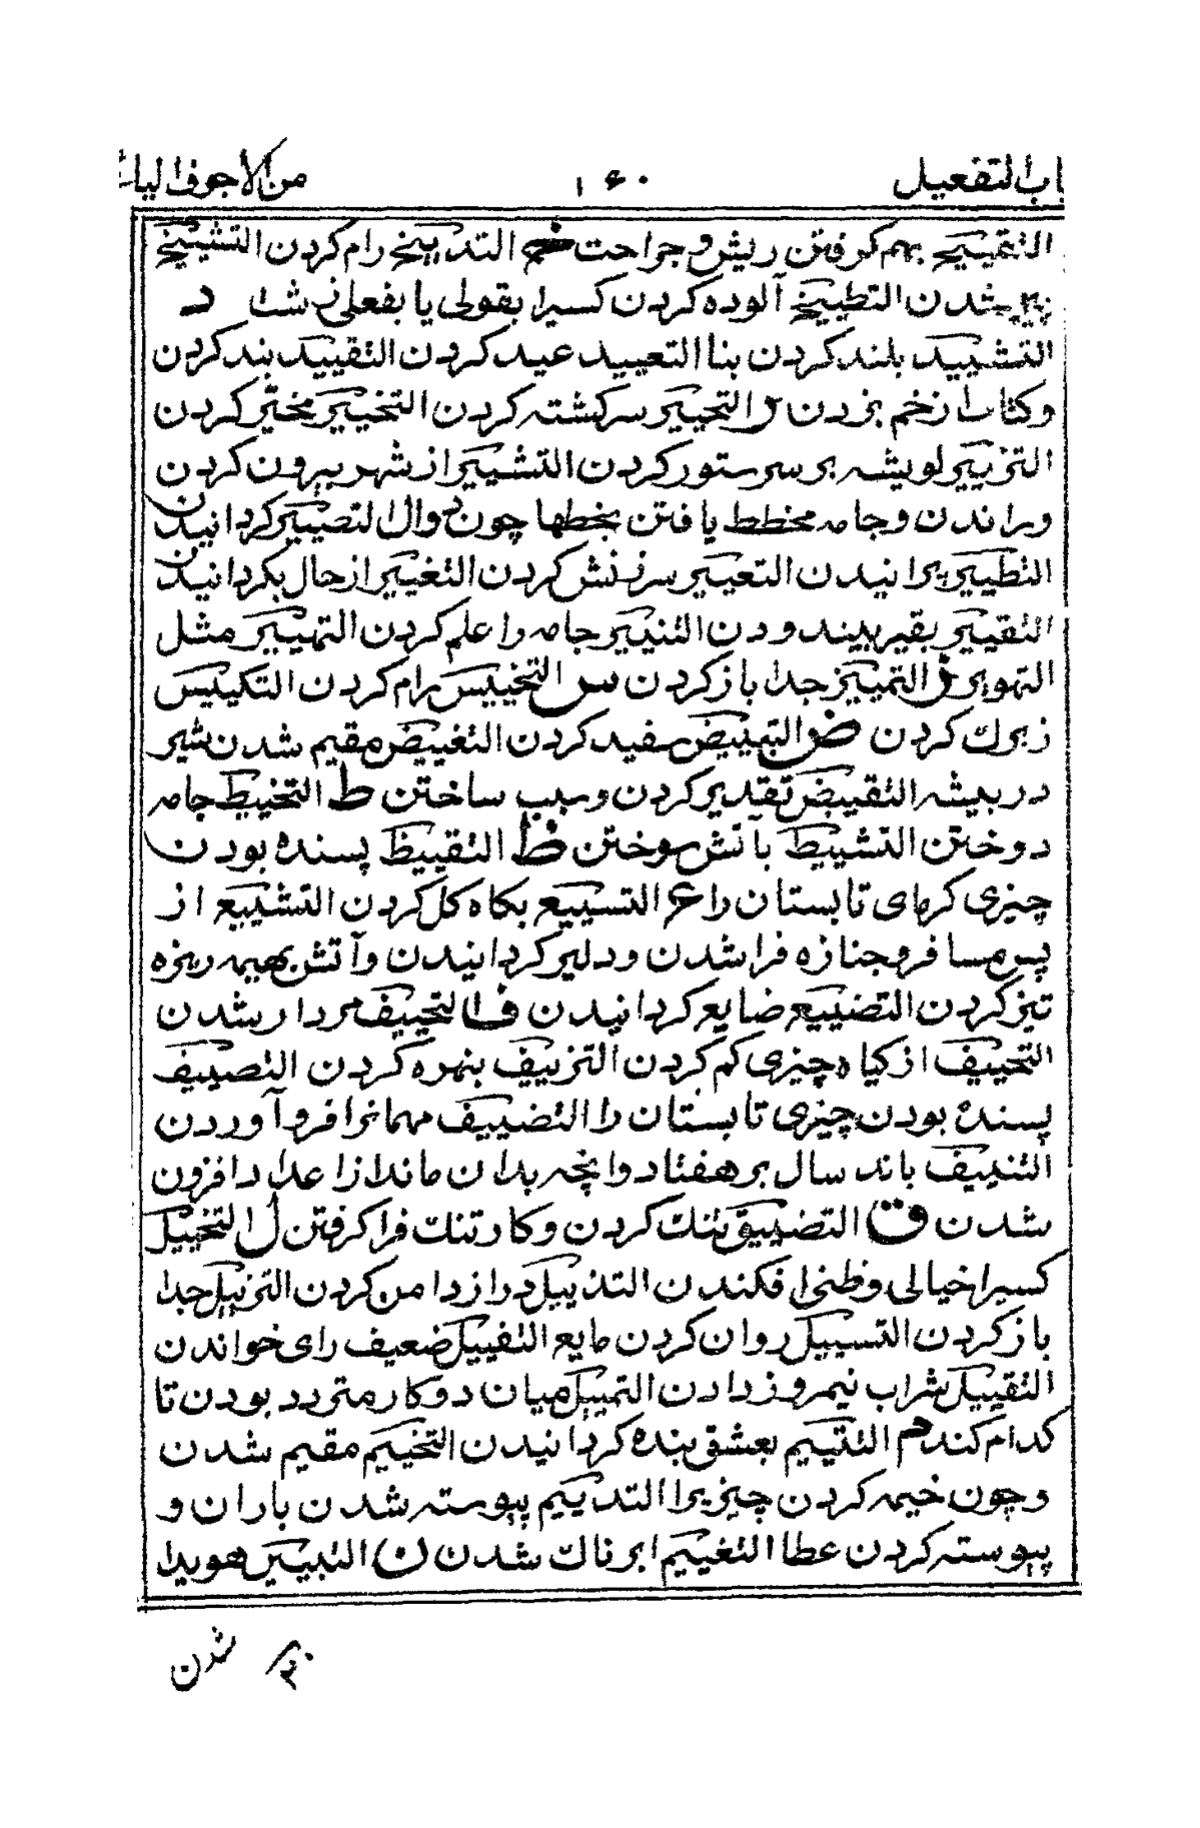 باب التفعيل ١٦٠ من الاجوف اليائے
التقییح بهم کرفتن ریش و جراحت خ التدییخ رام کردن التشییخ
پیر شدن التطییخ آلوده کردن کسیرا بقولی یا بفعلی زشت د
التشیید بلند کردن بنا التعیید عید کردن التقیید بند کردن
و کتاب را زخم بزدن ر التحییر سرکشته کردن التخییر مخیّر کردن
التزییر لویشه بر سر ستور کردن التشییر از شهر بیرون کردن
و براندن و جامه مخطط یافتن بخطها چون دوال التصییر کردانیدن
التطییر پرانیدن التعییر سرزنش کردن التغییر از حال بکردانیدن
التقییر بقیر بیندودن التنییر جامه را علم کردن التهییر مثل
التهویر ز التمییز جدا باز کردن س التخییس رام کردن التکییس
زیرك کردن ض التبییض سفید کردن التغییض مقیم شدن شیر
در بیشه التقییض تقدیر کردن و سبب ساختن ط التخییط جامه
دوختن التشییط بآتش سوختن ظ التقییظ پسنده بودن
چیزی کرمای تابستان را ع التسییع بکاه کل کردن التشییع از
پس مسافر و جنازه فرا شدن و دلیر کردانیدن و آتش بهیمه ریزه
تیز کردن التضییع ضایع کردانیدن ف التجییف مردار شدن
التحییف از کیاه چیزی کم کردن التزییف بنهره کردن التصییف
پسنده بودن چیزی تابستان را التضییف مهمانرا فرو آوردن
التنییف باند سال بر هفتاد و انچه بدان ماند از اعداد افزون
شدن ق التضییق تنك کردن و کار تنك فرا کرفتن ل التخییل
کسیرا خیالی و ظنی افکندن التذییل دراز دامن کردن التزییل جدا
باز کردن التسییل روان کردن مایع التفییل ضعیف رای خواندن
التقییل شراب نیمروز دادن التمییل میان دو کار متردد بودن تا
کدام کند م التتییم بعشق بنده کردانیدن التخییم مقیم شدن
و چون خیمه کردن چیزیرا التدییم پیوسته شدن باران و
پیوسته کردن عطا التغییم ابرناك شدن ن التبیین هویدا
شدن